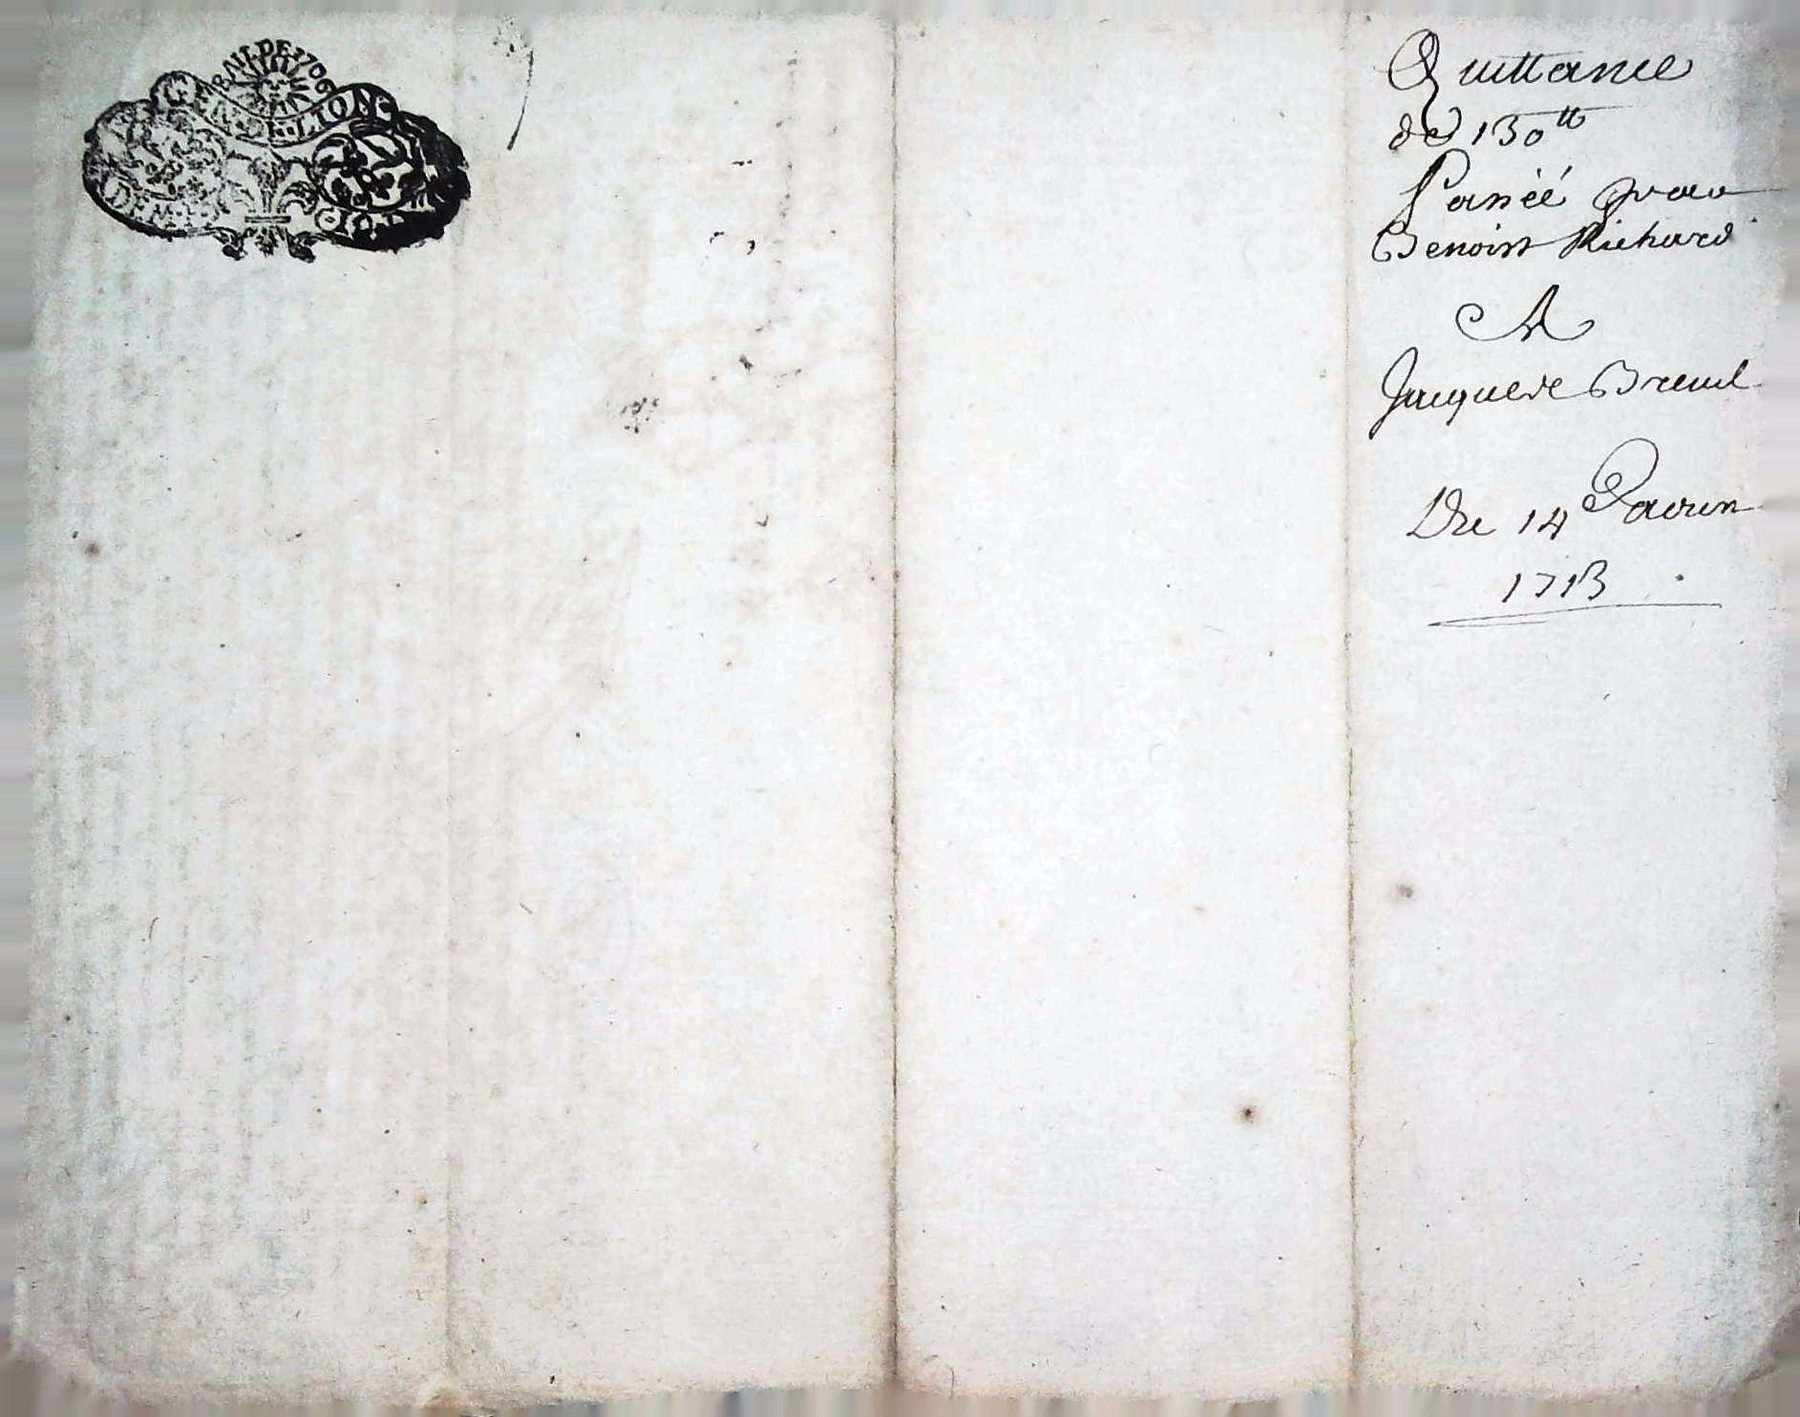 BAIL DE 1706
GEN. DE. LION
Quittance
de 130tt
Passéé par
Benoist Richard
A
Jacques Breuil
Du 14 Janvier
1713